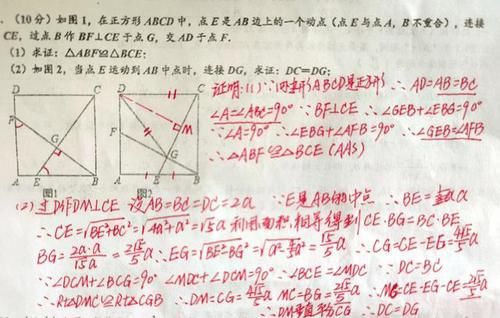 . (10分) 如图1, 在正方形ABCD中, 点E是AB边上的一个动点 (点E与点A, B不重合), 连接
CE, 过点B作BF⊥CE于点G, 交AD于点F.
(1) 求证: △ABF≌△BCE;
(2) 如图2, 当点E运动到AB中点时, 连接DG, 求证: DC=DG;
D C
F
G
A E B
图1
D C
M
F
G
A E B
图2
证明:(1) ∵四边形ABCD是正方形 ∴AD=AB=BC
∠A=∠ABC=90° ∵BF⊥CE ∴∠GEB+∠EBG=90°
∵∠A=90° ∴∠EBG+∠AFB=90° ∴∠GEB=∠AFB
∴△ABF≌△BCE (AAS)
(2) 过D作DM⊥CE 设AB=BC=DC=2a ∵E是AB的中点 ∴BE=½a
∴CE=√BE²+BC²=√4a²+a²=√5a 利用面积相等得到CE·BG=BC·BE
BG=2a·a/√5a=2√5/5a ∴EG=√BE²-BG²=√a²-4/5a²=√5/5a ∴CG=CE-EG=4√5/5a
∵∠DCM+∠BCG=90° ∠MDC+∠DCM=90° ∴∠BCE=∠MDC ∵DC=BC
∴Rt△DMC≌Rt△CGB ∴DM=CG=4√5/5a MC=BG=2√5/5a ∴MG=CE-EG-CE=2√5/5a
∴DM垂直平分CG ∴DC=DG